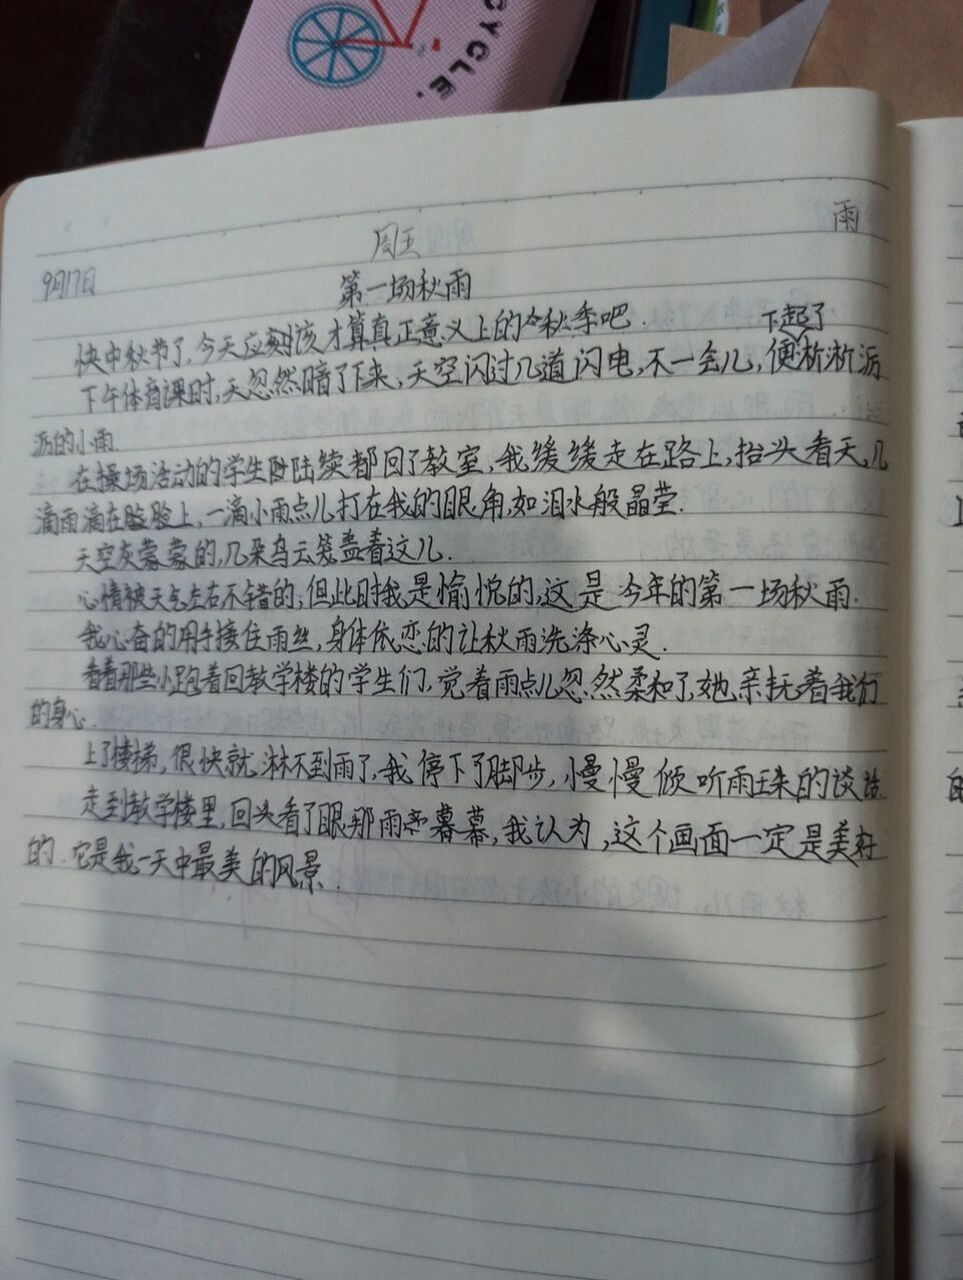 CYCLE.
周五 雨
9月17日
第一场秋雨
快中秋节了,今天应该才算真正意义上的秋季吧.
下起了
下午体育课时,天忽然暗了下来,天空闪过几道闪电,不一会儿,便淅淅沥
沥的小雨.
在操场活动的学生陆续都回了教室,我缓缓走在路上,抬头看天,几
滴雨滴在脸上,一滴小雨点儿打在我的眼角,如泪水般晶莹.
天空灰蒙蒙的,几朵乌云笼盖着这儿.
心情被天气左右不错的,但此时我是愉悦的,这是今年的第一场秋雨.
我心奋的用手接住雨丝,身体依恋的让秋雨洗涤心灵.
看着那些小跑着回教学楼的学生们,觉着雨点儿忽然柔和了,她亲抚着我们
的身心.
上了楼梯,很快就淋不到雨了,我停下了脚步,小慢慢倾听雨珠的谈话
走到教学楼里,回头看了眼那雨幕,我认为,这个画面一定是美好
的.它是我一天中最美的风景.